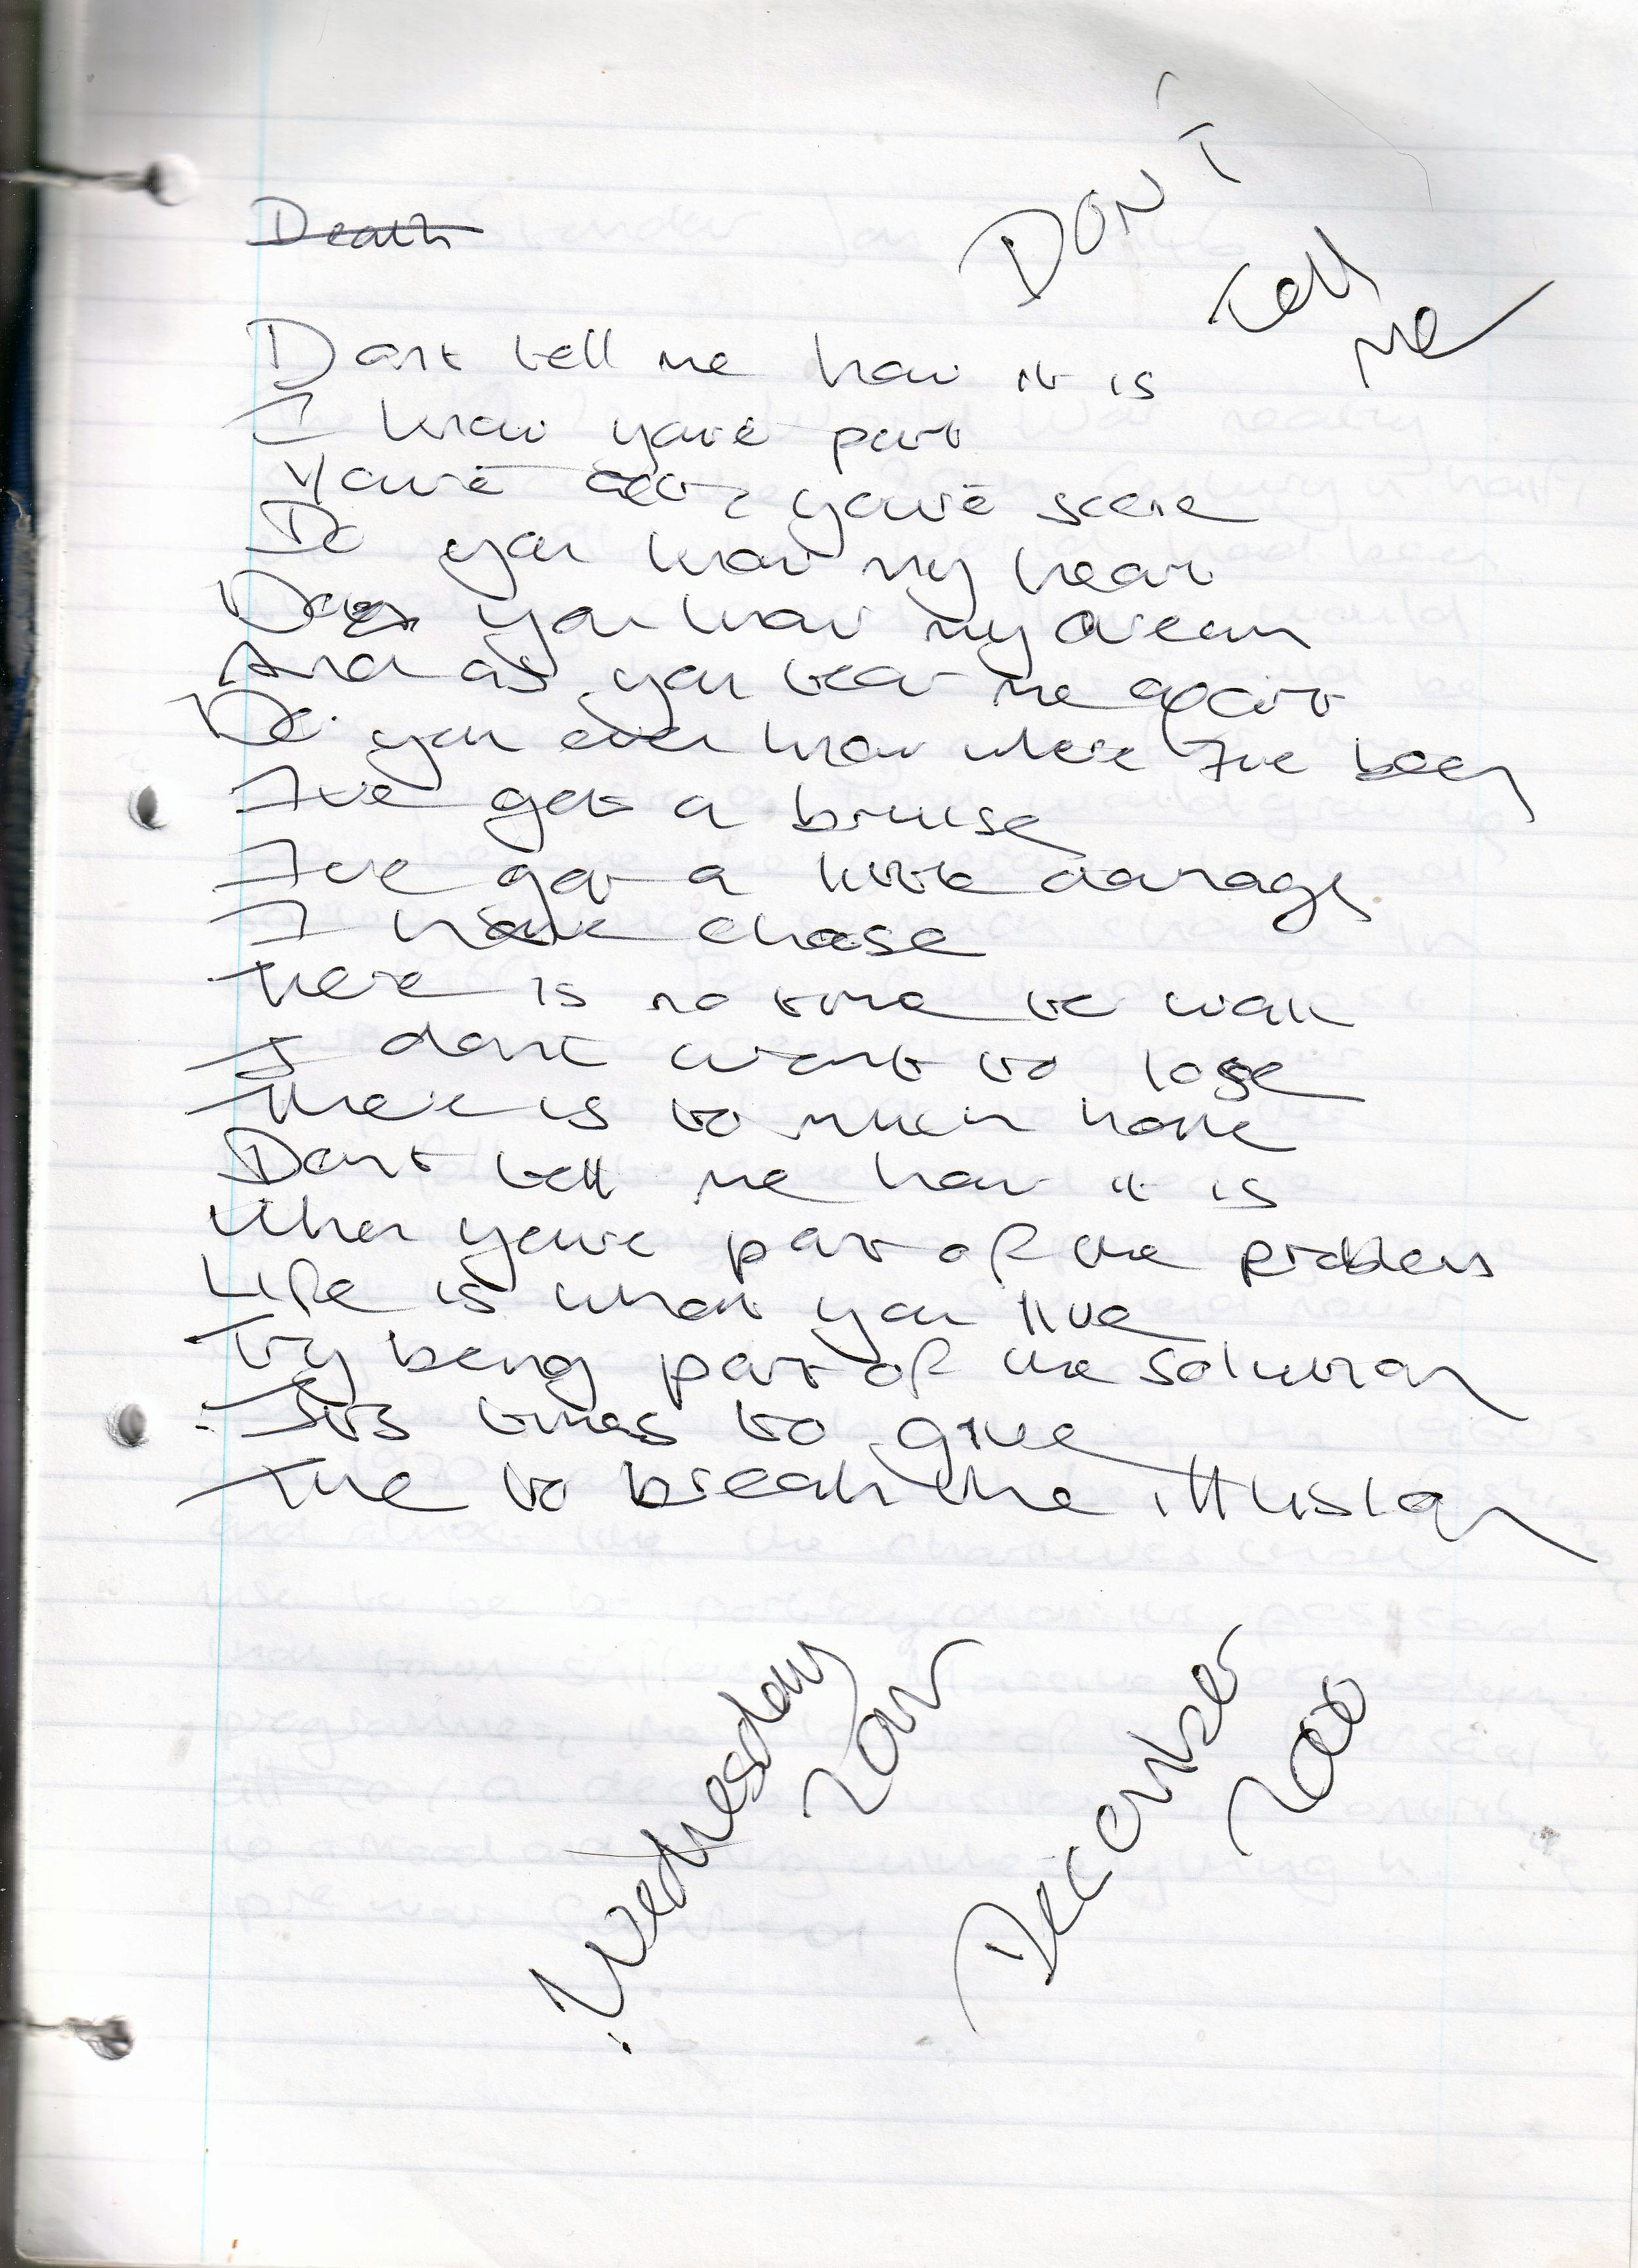 Death
DON'T
tell
me
Dont tell me how it is
I know youre part
Youre act, youre scene
Do you know my heart
Do you know my dream
And as you tear me apart
Do you even know where Ive been
Ive got a bruise
Ive got a little damage
I have chose
There is no time to wait
I dont want to lose
There is to much hate
Dont tell me how it is
When youre part of the problem
Life is what you live
Try being part of the solution
Its times to give
Time to break the illusion
Wednesday
20th
December
2000